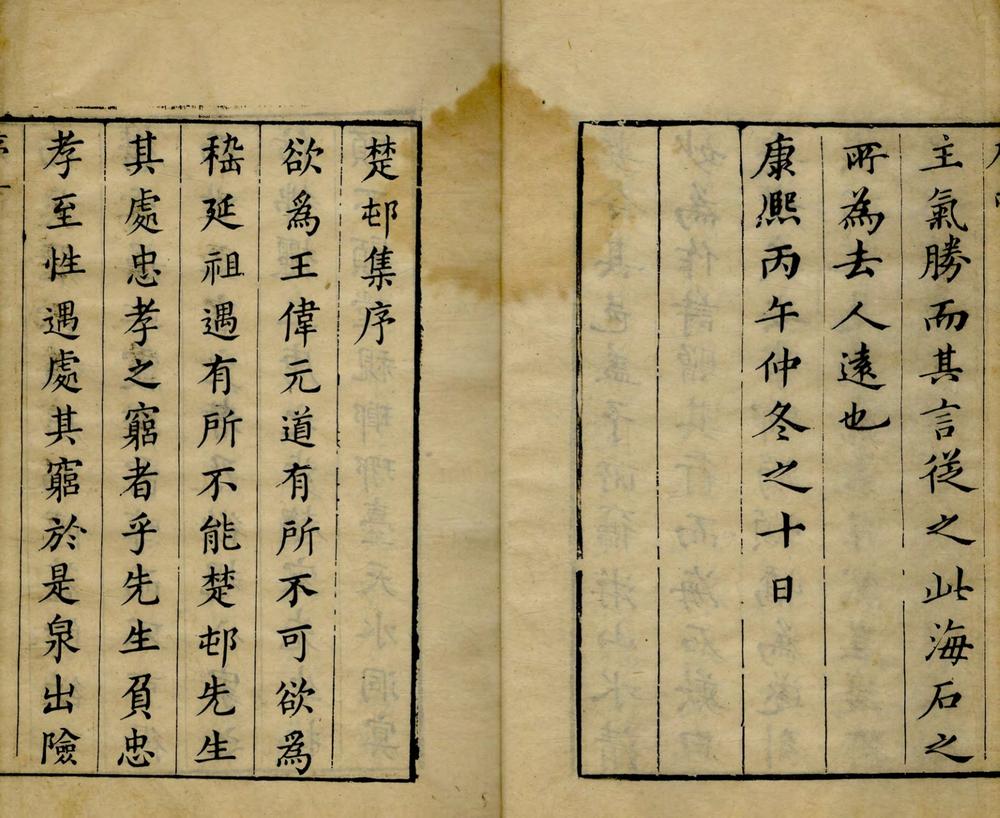 主氣勝而其言從之此海石之
所為去人遠也
康熈丙午仲冬之十日
楚邨集序
欲為王偉元道有所不可欲為
嵇延祖遇有所不能楚邨先生
其處忠孝之窮者乎先生負忠
孝至性遇處其窮於是泉出險